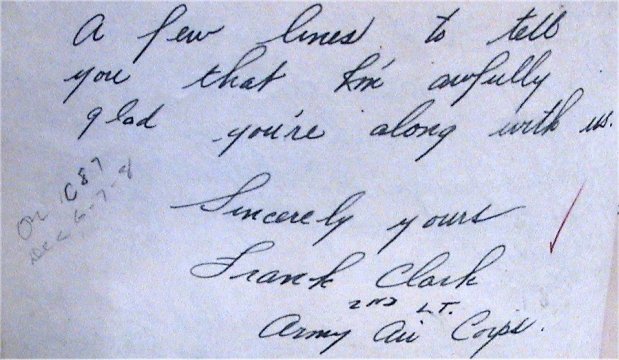 A few lines to tell
you that I'm awfully
glad you're along with us.
Sincerely yours
Frank Clark
2ND LT.
Army Air Corps.
On C87
Dec 6-7-8